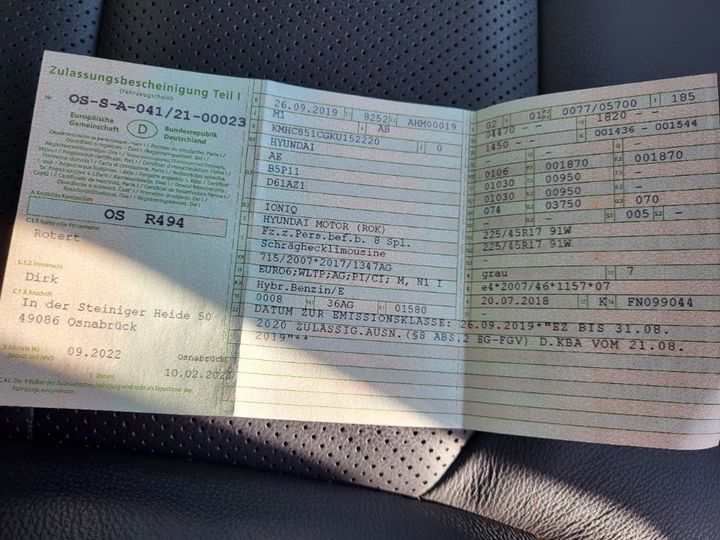 Zulassungsbescheinigung Teil I
(Fahrzeugschein)
Nr. OS-S-A-041/21-00023
Europäische Gemeinschaft
D
Bundesrepublik Deutschland
OS R494
C.1.1 Name oder Firmenname
Rotert
C.1.2 Vorname(n)
Dirk
C.1.3 Anschrift
In der Steiniger Heide 50
49086 Osnabrück
09.2022
Osnabrück
C.4c Der Inhaber der Zulassungsbescheinigung wird nicht als Eigentümer des Fahrzeugs ausgewiesen.
26.09.2019 8252 AHM00019
M1 AB
KMHC851CGKU152220 0
HYUNDAI
AE
B5P11
D61AZ1
IONIQ
HYUNDAI MOTOR (ROK)
Fz.z.Pers.bef.b. 8 Spl.
Schräghecklimousine
715/2007*2017/1347AG
EURO6;WLTP;AG;PI/CI; M, N1 I
Hybr.Benzin/E
0008 36AG 01580
02 01 0077/05700 185
04470 - 1820 -
1450 - 001436 -001544
- - -
0106 001870 001870
01030 00950 -
01030 00950 -
074 03750 - 070
- - 005 -
225/45R17 91W
225/45R17 91W
-
grau 7
e4*2007/46*1157*07
20.07.2018 K FN099044
DATUM ZUR EMISSIONSKLASSE: 26.09.2019*"EZ BIS 31.08.
2020 ZULÄSSIG.AUSN.(§8 ABS.2 EG-FGV) D.KBA VOM 21.08.
2019"**